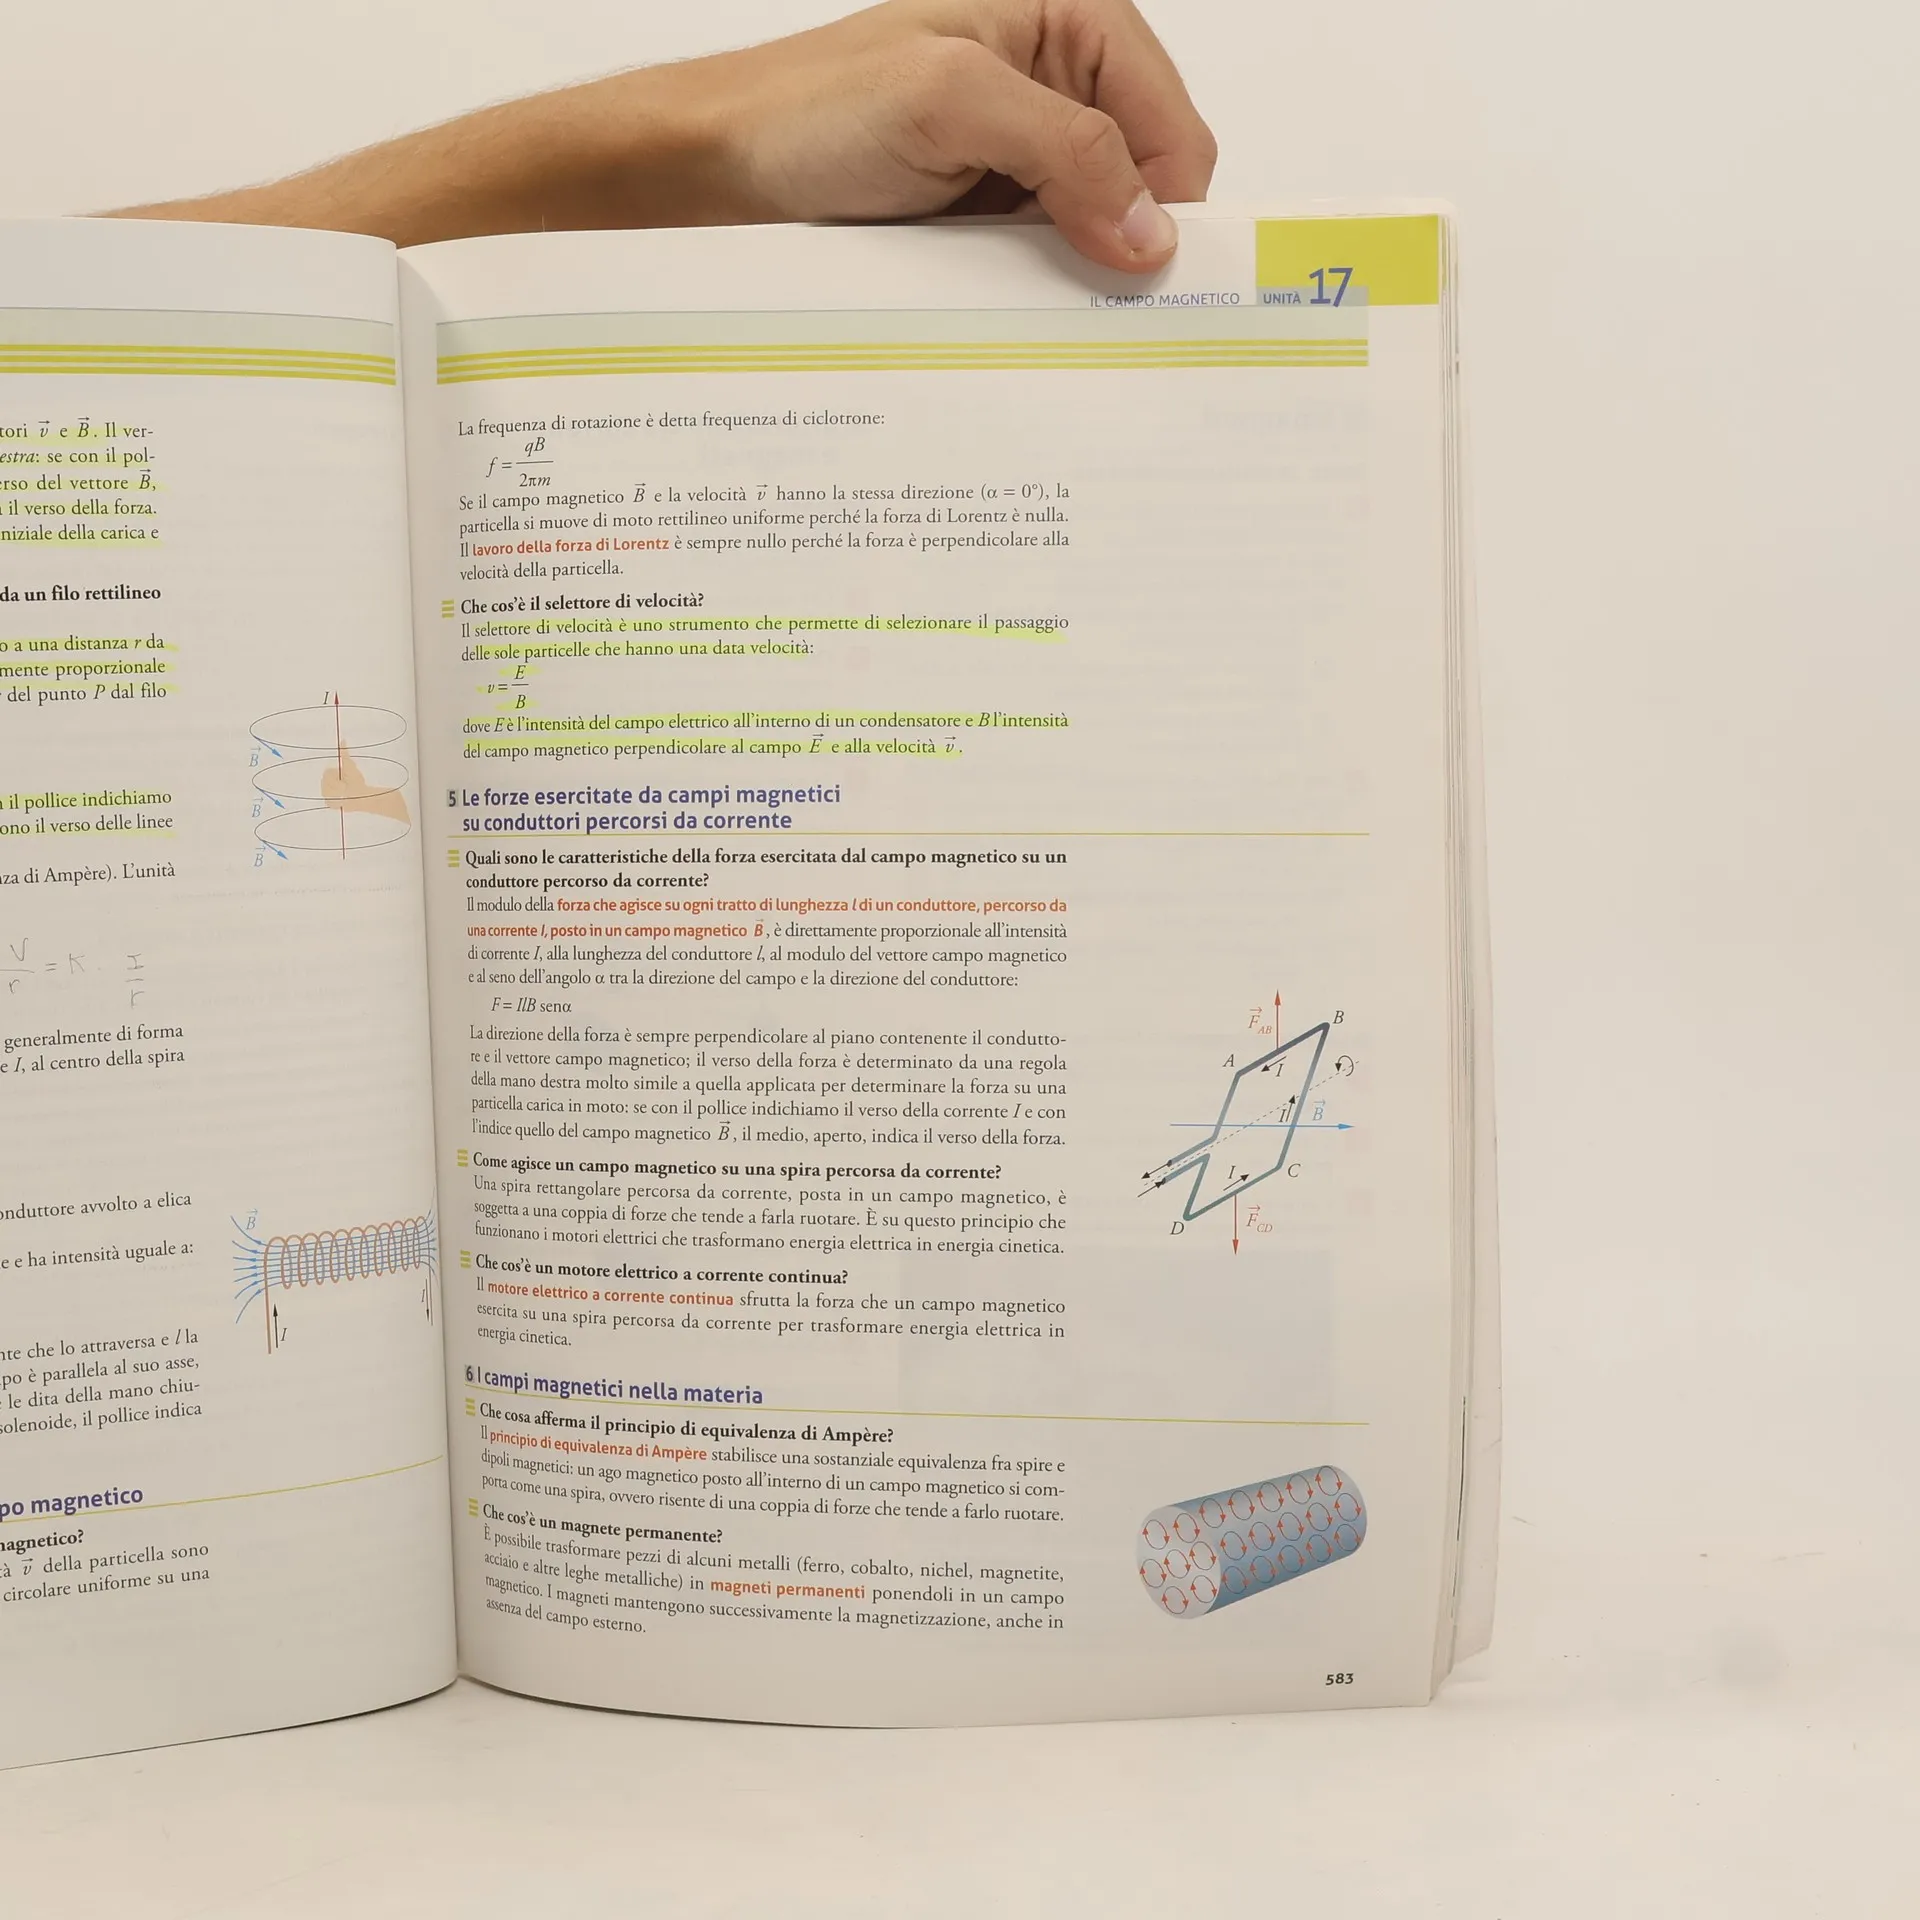 tori v e B. Il ver-
estra: se con il pol-
erso del vettore B,
il verso della forza.
niziale della carica e
da un filo rettilineo
o a una distanza r da
mente proporzionale
del punto P dal filo
I
B
B
B
il pollice indichiamo
ono il verso delle linee
nza di Ampère). L'unità
V/r = K · I/r
generalmente di forma
e I, al centro della spira
onduttore avvolto a elica
e e ha intensità uguale a:
B
I
I
nte che lo attraversa e l la
po è parallela al suo asse,
le dita della mano chiu-
solenoide, il pollice indica
po magnetico
magnetico?
tà v della particella sono
circolare uniforme su una
IL CAMPO MAGNETICO UNITÀ 17
La frequenza di rotazione è detta frequenza di ciclotrone:
f = qB / 2πm
Se il campo magnetico B e la velocità v hanno la stessa direzione (α = 0°), la
particella si muove di moto rettilineo uniforme perché la forza di Lorentz è nulla.
Il lavoro della forza di Lorentz è sempre nullo perché la forza è perpendicolare alla
velocità della particella.
Che cos'è il selettore di velocità?
Il selettore di velocità è uno strumento che permette di selezionare il passaggio
delle sole particelle che hanno una data velocità:
v = E / B
dove E è l'intensità del campo elettrico all'interno di un condensatore e B l'intensità
del campo magnetico perpendicolare al campo E e alla velocità v.
5 Le forze esercitate da campi magnetici
su conduttori percorsi da corrente
Quali sono le caratteristiche della forza esercitata dal campo magnetico su un
conduttore percorso da corrente?
Il modulo della forza che agisce su ogni tratto di lunghezza l di un conduttore, percorso da
una corrente I, posto in un campo magnetico B, è direttamente proporzionale all'intensità
di corrente I, alla lunghezza del conduttore l, al modulo del vettore campo magnetico
e al seno dell'angolo α tra la direzione del campo e la direzione del conduttore:
F = IlB senα
La direzione della forza è sempre perpendicolare al piano contenente il condutto-
re e il vettore campo magnetico; il verso della forza è determinato da una regola
della mano destra molto simile a quella applicata per determinare la forza su una
particella carica in moto: se con il pollice indichiamo il verso della corrente I e con
l'indice quello del campo magnetico B, il medio, aperto, indica il verso della forza.
Come agisce un campo magnetico su una spira percorsa da corrente?
Una spira rettangolare percorsa da corrente, posta in un campo magnetico, è
soggetta a una coppia di forze che tende a farla ruotare. È su questo principio che
funzionano i motori elettrici che trasformano energia elettrica in energia cinetica.
Che cos'è un motore elettrico a corrente continua?
Il motore elettrico a corrente continua sfrutta la forza che un campo magnetico
esercita su una spira percorsa da corrente per trasformare energia elettrica in
energia cinetica.
F AB
B
A
I
I
B
I
C
D
F CD
6 I campi magnetici nella materia
Che cosa afferma il principio di equivalenza di Ampère?
Il principio di equivalenza di Ampère stabilisce una sostanziale equivalenza fra spire e
dipoli magnetici: un ago magnetico posto all'interno di un campo magnetico si com-
porta come una spira, ovvero risente di una coppia di forze che tende a farlo ruotare.
Che cos'è un magnete permanente?
È possibile trasformare pezzi di alcuni metalli (ferro, cobalto, nichel, magnetite,
acciaio e altre leghe metalliche) in magneti permanenti ponendoli in un campo
magnetico. I magneti mantengono successivamente la magnetizzazione, anche in
assenza del campo esterno.
583